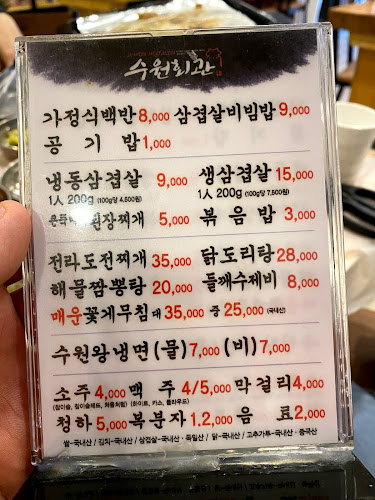 수원회관
가정식백반 8,000 삼겹살비빔밥 9,000
공기밥 1,000
냉동삼겹살 9,000 생삼겹살 15,000
1人 200g (100g당 4,500원) 1人 200g (100g당 7,500원)
된장찌개 5,000 볶음밥 3,000
전라도전찌개 35,000 닭도리탕 28,000
해물짬뽕탕 20,000 들깨수제비 8,000
매운꽃게무침 대 35,000 중 25,000 (국내산)
수원왕냉면 (물) 7,000 (비) 7,000
소주 4,000 맥주 4/5,000 막걸리 4,000
(참이슬, 참이슬레드, 처음처럼) (하이트, 카스, 클라우드)
청하 5,000 복분자 1,2,000 음료 2,000
쌀-국내산 / 김치-국내산 / 삼겹살-국내산·독일산 / 닭-국내산 / 고추가루-국내산·중국산